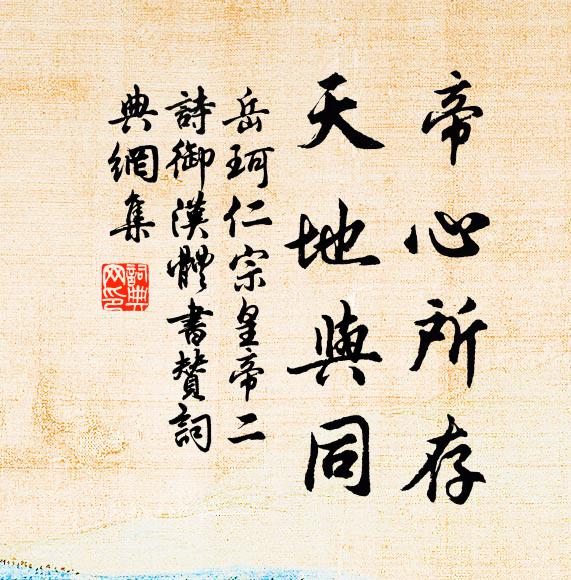 帝心所存
天地與同
岳珂仁宗皇帝二
詩御漢體書贊詞
典網集
詞典
网印